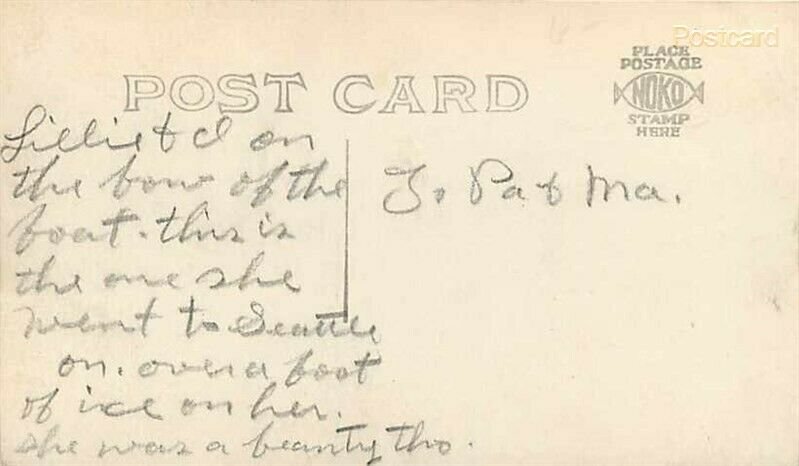 Postcard
PLACE
POSTAGE
NOKO
STAMP
HERE
POST CARD
Lillie & I on
the bow of the
boat. this is
the one she
went to Seattle
on. over a foot
of ice on her.
she was a beauty tho.
To Pa & Ma.